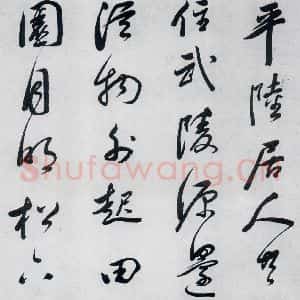 平陸居人共
住武陵源還
從物外起田
園月明松下
Shufawang.cn